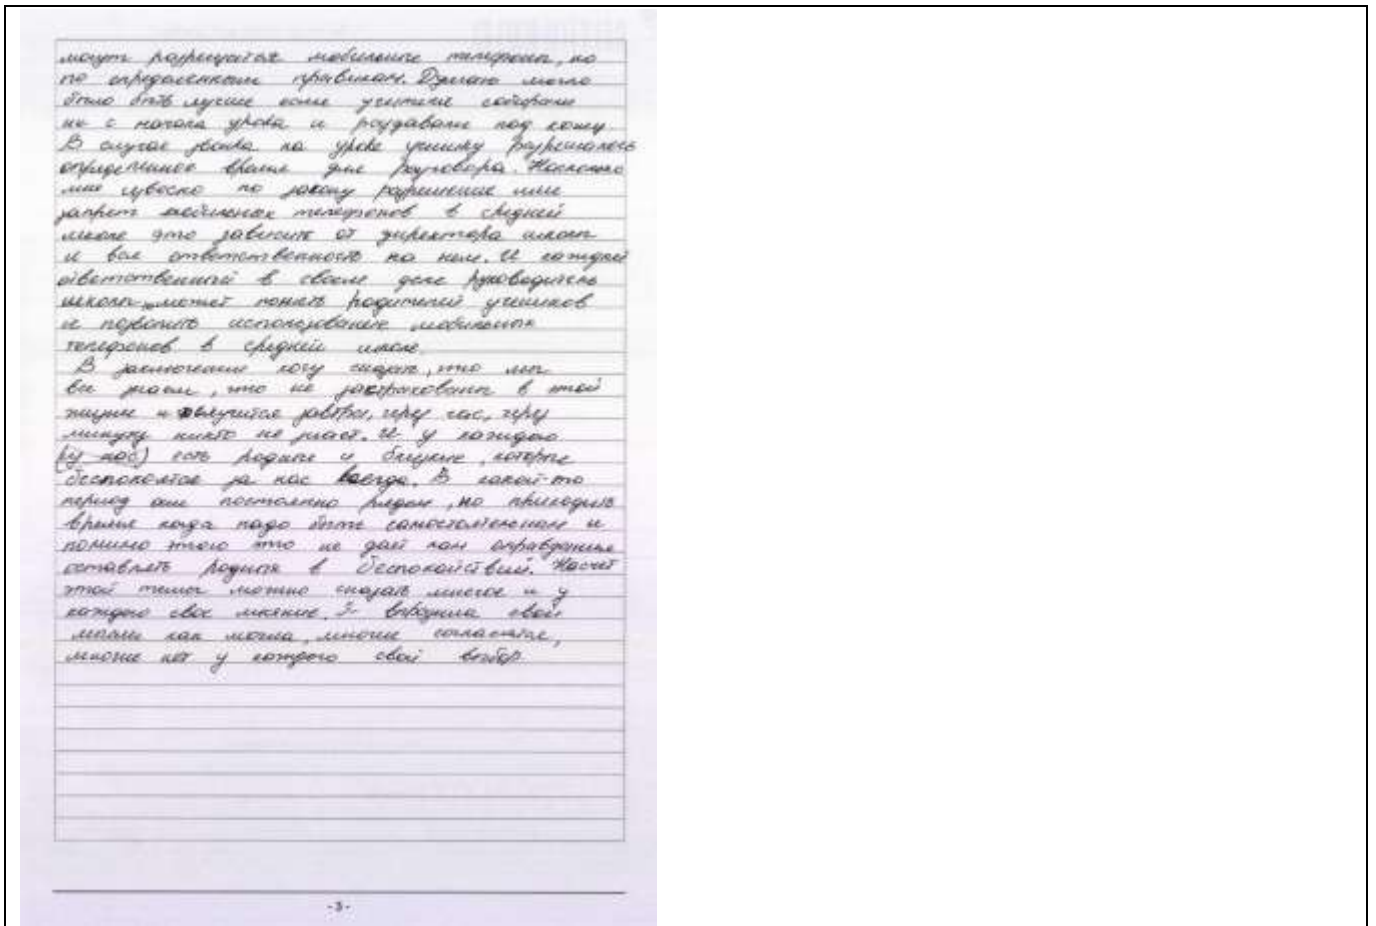 могут разрешится мобильные телефоны, но
по определенным правилам. Думаю могло
было быть лучше если учителя собирали
их с начала урока и раздавали под конец.
В случае звонка на уроке ученику разрешалось
определенное время для разговора. Насколько
мне известно по закону разрешение или
запрет мобильных телефонов в средней
школе это зависит от директора школы
и вся ответственность на нем. И каждый
ответственный в своем деле руководитель
школы может понять родителей учеников
и позволить использование мобильных
телефонов в средней школе.
В заключении хочу сказать, что мы
все знаем, что не застрахованы в этой
жизни и случится завтра, через час, через
минуту никто не знает. И у каждого
(у нас) есть родные и близкие, которые
беспокоятся за нас всегда. В какой-то
период они постоянно рядом, но приходить
время когда надо быть самостоятельным и
помимо этого это не дает нам оправдания
оставлять родных в беспокойствии. Насчет
этой темы можно сказать многое и у
каждого свое мнение. Я выразила свои
мысли как могла, многие согласятся,
многие нет у каждого свой выбор.
-3-